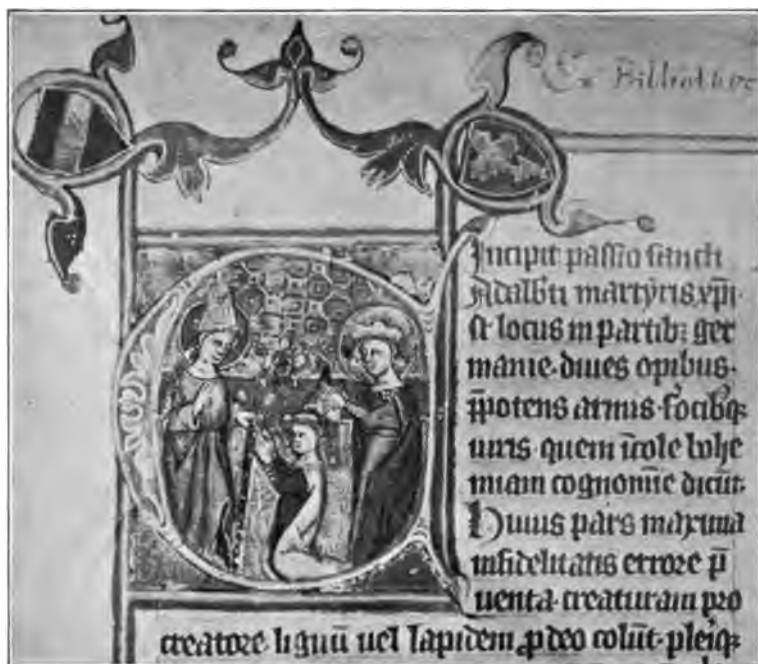 Ex Bibliothec
Incipit passio sancti
Adalbti martyris xpi
st locus in partib; ger
manie diues opibus
p̄potens armis focibq;
uiris quem īcole bohe
miam cognomīe dicūt.
Huius pars maxima
infidelitatis errore p̄
uenta creaturam pro
creatore lignū uel lapidem p̱ deo colūt pleiq;